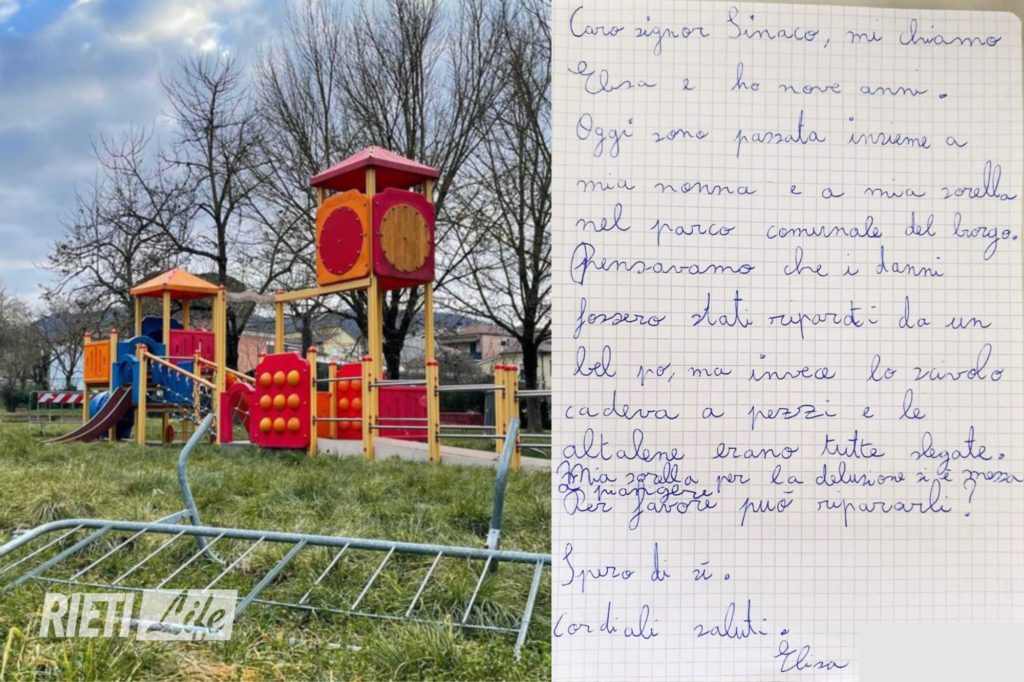 Caro signor Sinaco, mi chiamo
Elisa e ho nove anni.
Oggi sono passata insieme a
mia nonna e a mia sorella
nel parco comunale del borgo.
Pensavamo che i danni
fossero stati riparati da un
bel po, ma invece lo scivolo
cadeva a pezzi e le
altalene erano tutte slegate.
Mia sorella per la delusione si è messa
a piangere
Per favore può ripararli?
Spero di sì.
cordiali saluti.
Elisa
RIETI Life